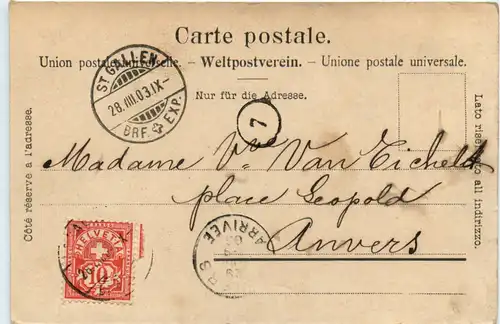 Carte postale.
Union postale universelle. - Weltpostverein. - Unione postale universale.
Nur für die Adresse.
Côté réservé à l'adresse.
Lato riservato all indirizzo.
ST. GALLEN
28.III.03.IX-
BRF. EXP.
7
Madame Vve Van Eichelt
place Léopold
Anvers
HELVETIA
10
ARRIVÉE